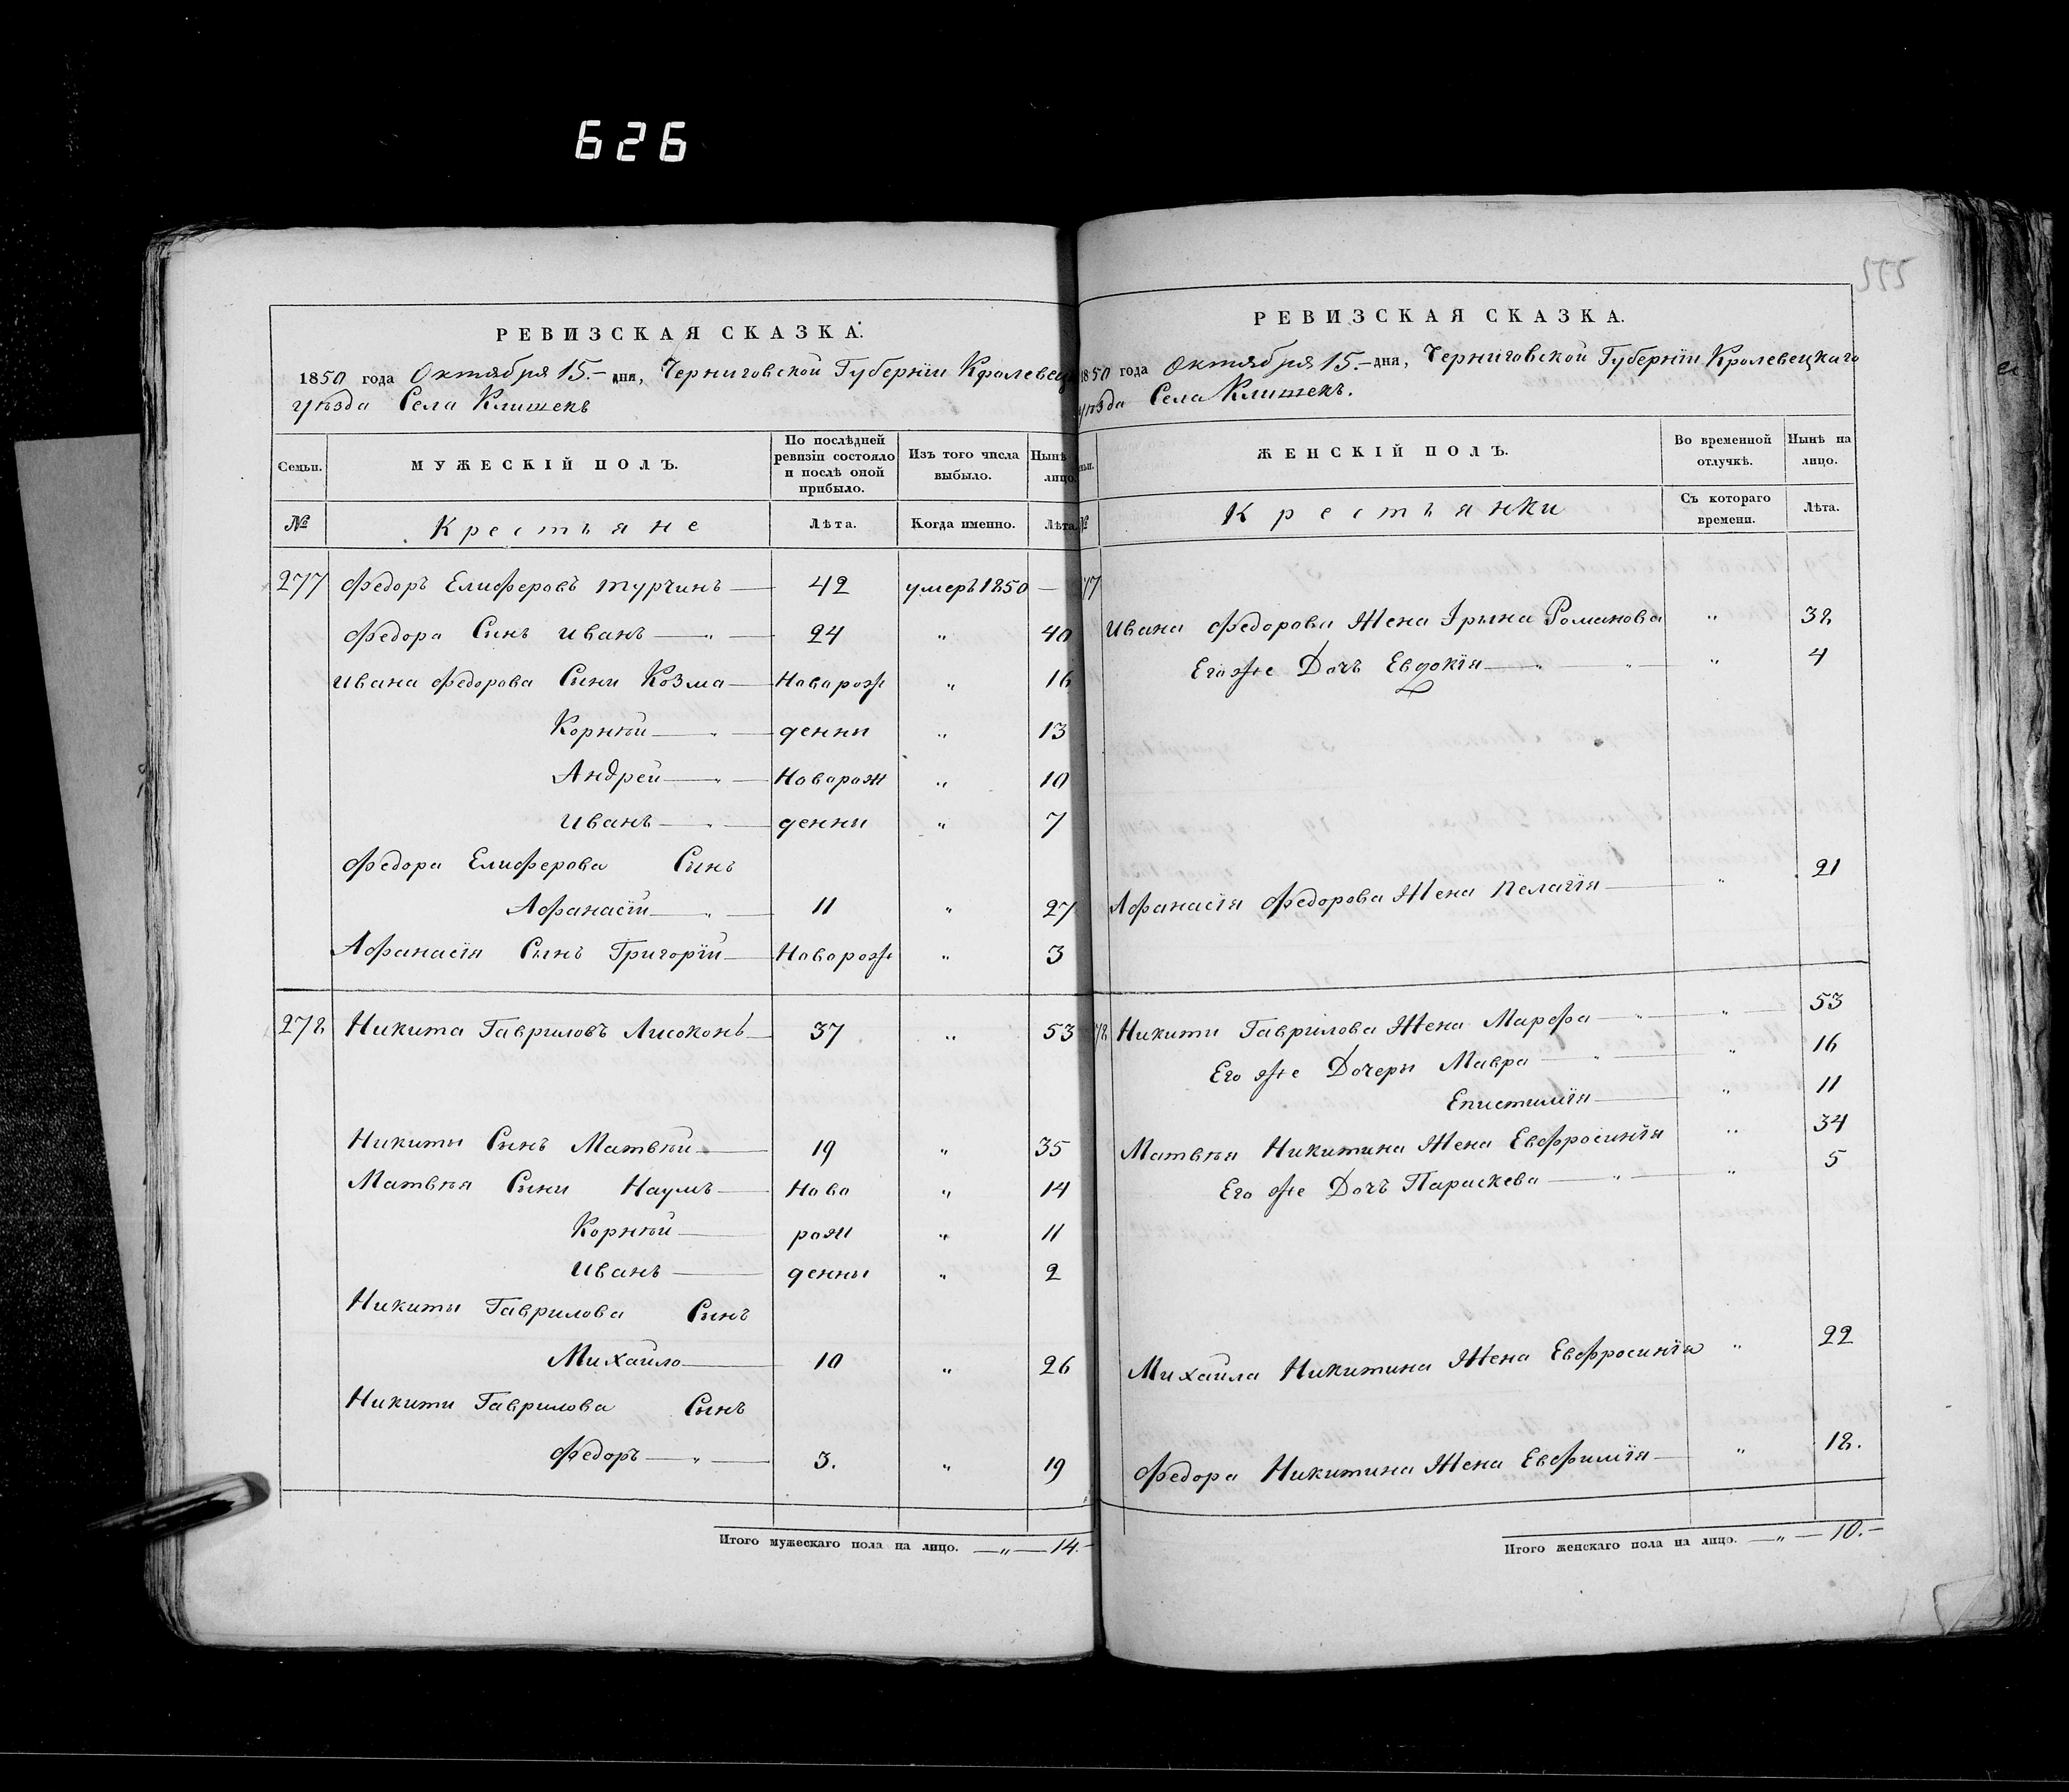 626
555
РЕВИЗСКАЯ СКАЗКА.
1850 года Октября 15.- дня, Черниговской Губерніи Кролевец
уѣзда Села Клишекъ
Семьи.
МУЖЕСКІЙ ПОЛЪ.
По послѣдней ревизіи состояло и послѣ оной прибыло.
Изъ того числа выбыло.
Нынѣ лицо.
№ Крестьяне Лѣта. Когда именно. Лѣта
277 Федоръ Елиферовъ Турчинъ — 42 умеръ 1850 —
Федора Синъ Иванъ — „ — 24 „ 40
Ивана Федорова Сыни Козма — Новорож „ 16
Корнѣй — „ — денни „ 13
Андрей — „ — Новорож „ 10
Иванъ — „ — денни „ 7
Федора Елиферова Сынъ
Афанасій — „ — 11 „ 27
Афанасія Сынъ Григорій — Новорож „ 3
278 Никита Гавриловъ Лисоконь — 37 „ 53
Никиты Сынъ Матвѣй — 19 „ 35
Матвѣя Сыни Наумъ — Ново „ 14
Корнѣй — рож „ 11
Иванъ — денны „ 2
Никиты Гаврилова Сынъ
Михайло — 10 „ 26
Никити Гаврилова Сынъ
Федоръ — „ — 3. „ 19
Итого мужескаго пола на лицо. — „ — 14.-
РЕВИЗСКАЯ СКАЗКА.
1850 года Октября 15.- дня, Черниговской Губерніи Кролевецкаго
уѣзда Села Клишекъ.
ЖЕНСКІЙ ПОЛЪ.
Во временной отлучкѣ.
Нынѣ на лицо.
№ Крестьянки Съ котораго времени. Лѣта.
77
Ивана Федорова Жена Ірына Романова „ 38
Его же Дочъ Евдокія — „ — „ — „ 4
Афанасія Федорова Жена Пелагія — „ 21
78 Никити Гаврилова Жена Марфа — „ — „ — 53
Его же Дочеры Мавра — „ — „ 16
Епистимія — „ 11
Матвѣя Никитина Жена Евфросинія „ 34
Его же Дочъ Параскева — „ — „ 5
Михайла Никитина Жена Евфросинія „ 22
Федора Никитина Жена Евфимія — „ 18.
Итого женскаго пола на лицо. — „ — 10.-